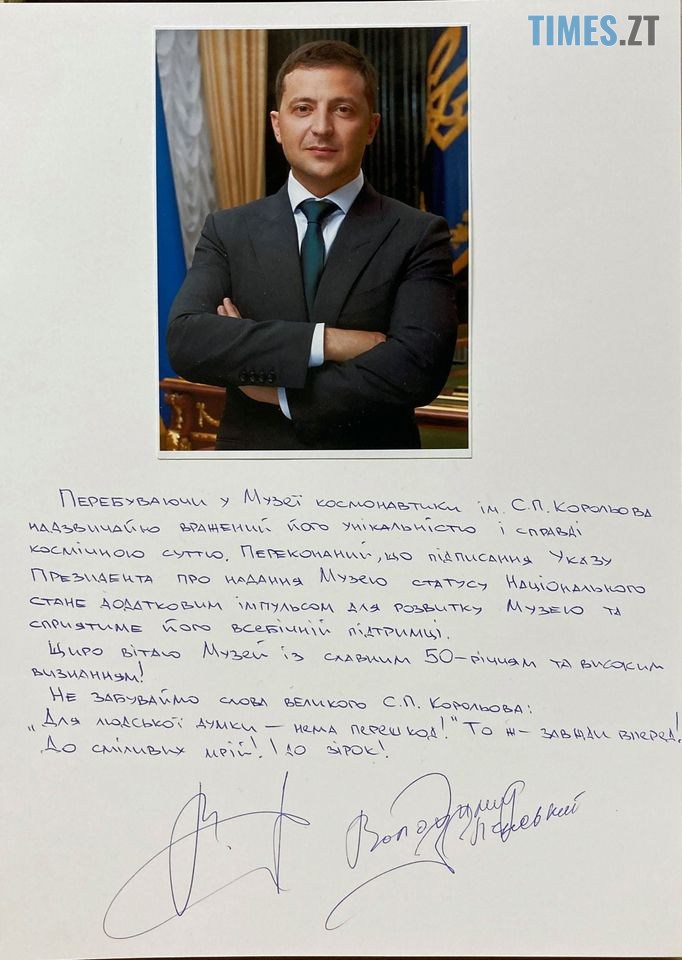 TIMES.ZT
Перебуваючи у Музеї космонавтики ім. С.П. Корольова
надзвичайно вражений його унікальністю і справді
космічною суттю. Переконаний, що підписання Указу
Президента про надання Музею статусу Національного
стане додатковим імпульсом для розвитку Музею та
сприятиме його всебічній підтримці.
Щиро вітаю Музей із славним 50-річчям та високим
визнанням!
Не забуваймо слова великого С.П. Корольова:
„Для людської думки – нема перешкод!" То ж – завжди вперед!
До сміливих мрій! І до зірок!
Володимир